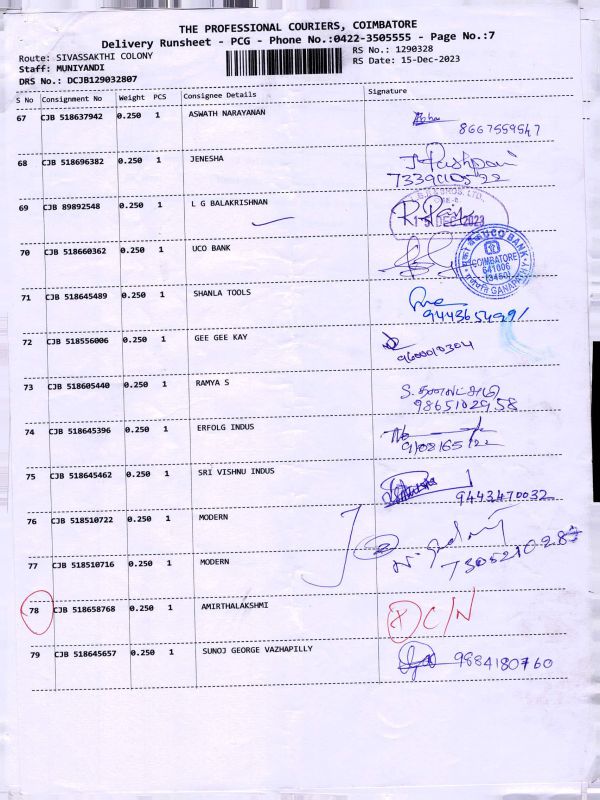 THE PROFESSIONAL COURIERS, COIMBATORE
Delivery Runsheet - PCG - Phone No.:0422-3505555 - Page No.:7
Route: SIVASSAKTHI COLONY
RS No.: 1290328
Staff: MUNIYANDI
RS Date: 15-Dec-2023
DRS No.: DCJB129032807
S No Consignment No Weight PCS Consignee Details Signature
67 CJB 518637942 0.250 1 ASWATH NARAYANAN
8667559547
68 CJB 518696382 0.250 1 JENESHA
69 CJB 89892548 0.250 1 L G BALAKRISHNAN
DEC 2023
70 CJB 518660362 0.250 1 UCO BANK
UCO BANK
COIMBATORE
641006
GANAPATHY
71 CJB 518645489 0.250 1 SHANLA TOOLS
72 CJB 518556006 0.250 1 GEE GEE KAY
9600010304
73 CJB 518605440 0.250 1 RAMYA S
9865102958
74 CJB 518645396 0.250 1 ERFOLG INDUS
75 CJB 518645462 0.250 1 SRI VISHNU INDUS
9443470032
76 CJB 518510722 0.250 1 MODERN
77 CJB 518510716 0.250 1 MODERN
78 CJB 518658768 0.250 1 AMIRTHALAKSHMI
C/N
79 CJB 518645657 0.250 1 SUNOJ GEORGE VAZHAPILLY
9884180760